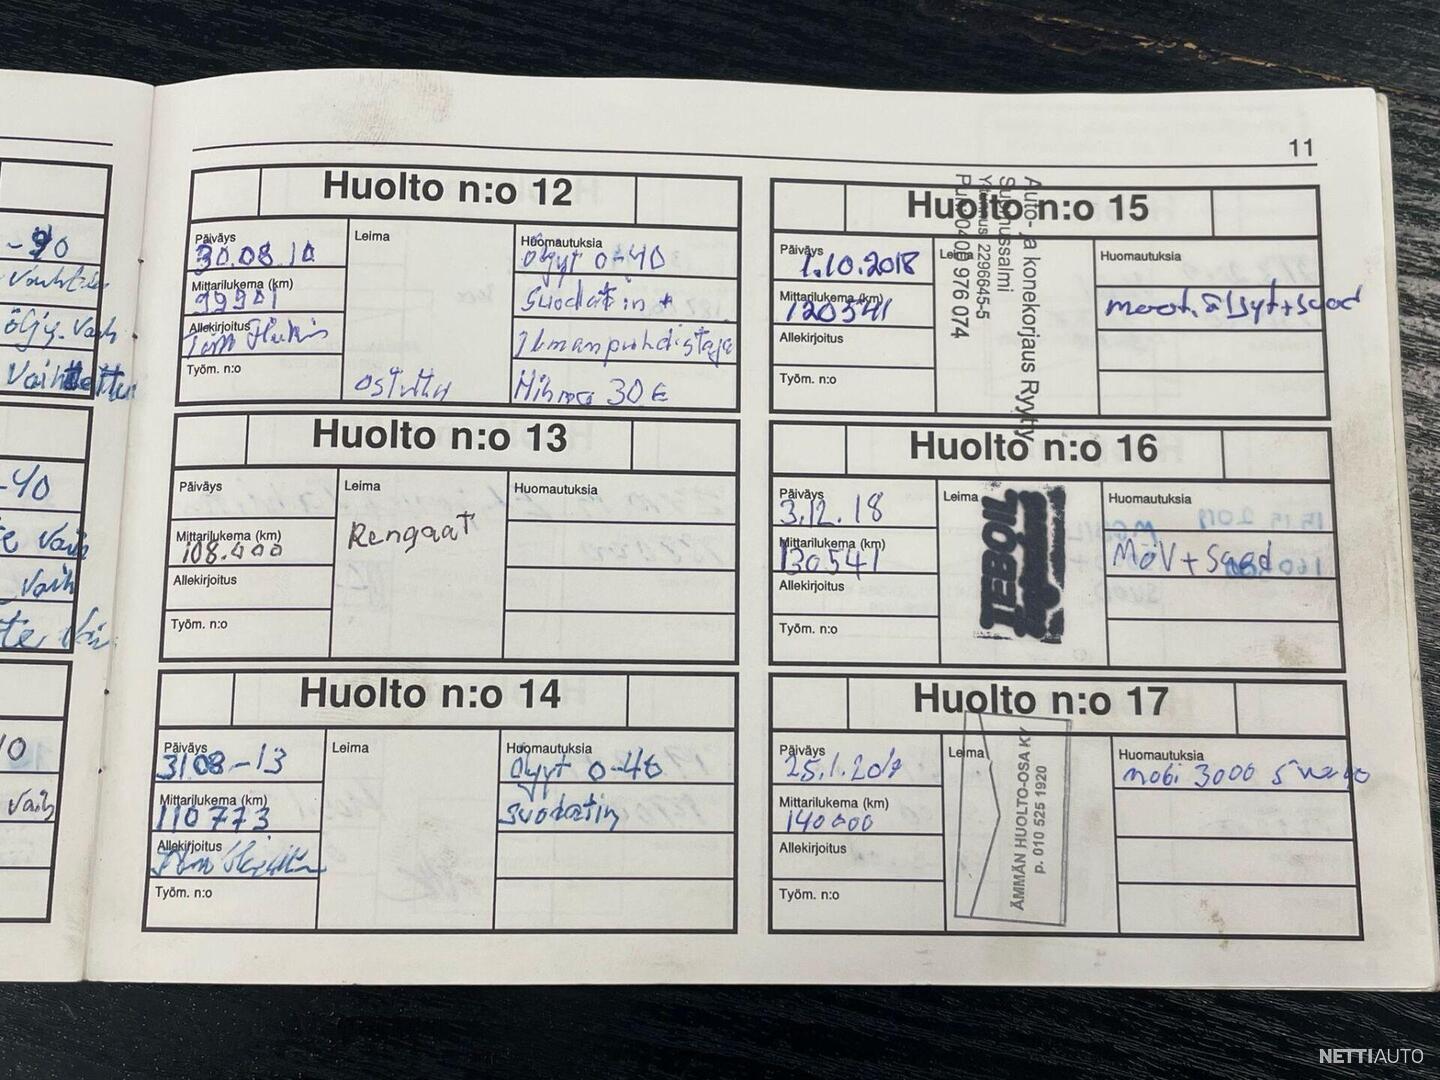 11
-90
öljy. vaih
-40
vaih
vaih
Huolto n:o 12
Päiväys
30.08.10
Mittarilukema (km)
99901
Allekirjoitus
Työm. n:o
Leima
ostettu
Huomautuksia
Öljyt 0-40
Suodatin +
Ilmanpuhdistaja
Hihna 30€
Huolto n:o 13
Päiväys
Mittarilukema (km)
108.400
Allekirjoitus
Työm. n:o
Leima
Renqaat
Huomautuksia
Huolto n:o 14
Päiväys
3108-13
Mittarilukema (km)
110773
Allekirjoitus
Työm. n:o
Leima
Huomautuksia
Öljyt 0-40
suodatin
Huolto n:o 15
Päiväys
1.10.2018
Mittarilukema (km)
120541
Allekirjoitus
Työm. n:o
Leima
Auto- ja konekorjaus Ryyty
Suomussalmi
Y-tunnus 2296645-5
Puh. 0400 976 074
Huomautuksia
moot. öljyt+suod
Huolto n:o 16
Päiväys
3.12.18
Mittarilukema (km)
130541
Allekirjoitus
Työm. n:o
Leima
TEBOIL
Huomautuksia
MÖV+Suod
Huolto n:o 17
Päiväys
25.1.20
Mittarilukema (km)
140000
Allekirjoitus
Työm. n:o
Leima
ÄMMÄN HUOLTO-OSA KY
p. 010 525 1920
Huomautuksia
mobi 3000 5
NETTIAUTO